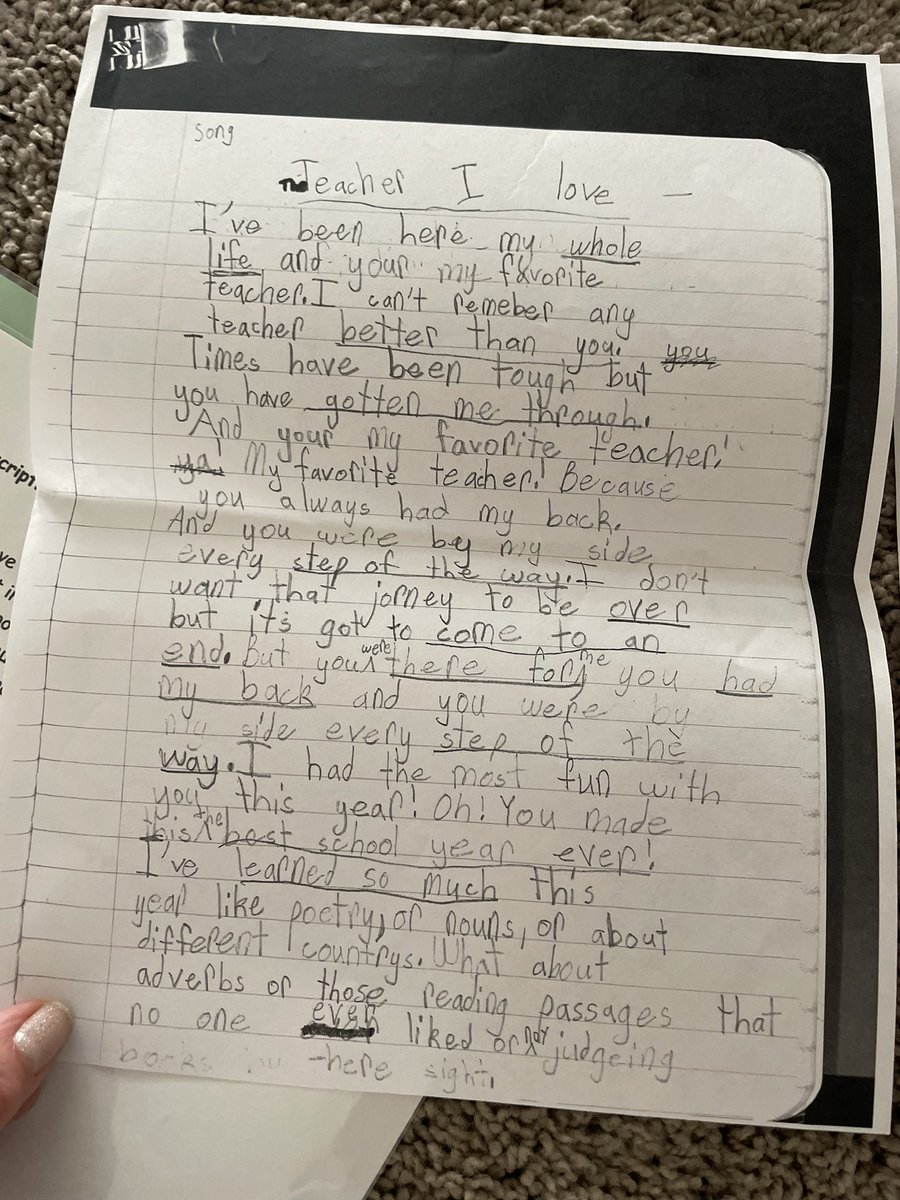 song
Teacher I love —
I've been here my whole
life and your my favorite
teacher. I can't remeber any
teacher better than you. you
Times have been tough but
you have gotten me through.
And your my favorite teacher!
ya! My favorite teacher! Because
you always had my back.
And you were by my side
every step of the way. I don't
want that jorney to be over
but it's got to come to an
end. But you were there for me you had
my back and you were by
my side every step of the
way. I had the most fun with
you this year! Oh! You made
this the best school year ever!
I've learned so much this
year like poetry, or nouns, or about
different countrys. What about
adverbs or those reading passages that
no one ever liked or not judgeing
books there sight.
cript
ve